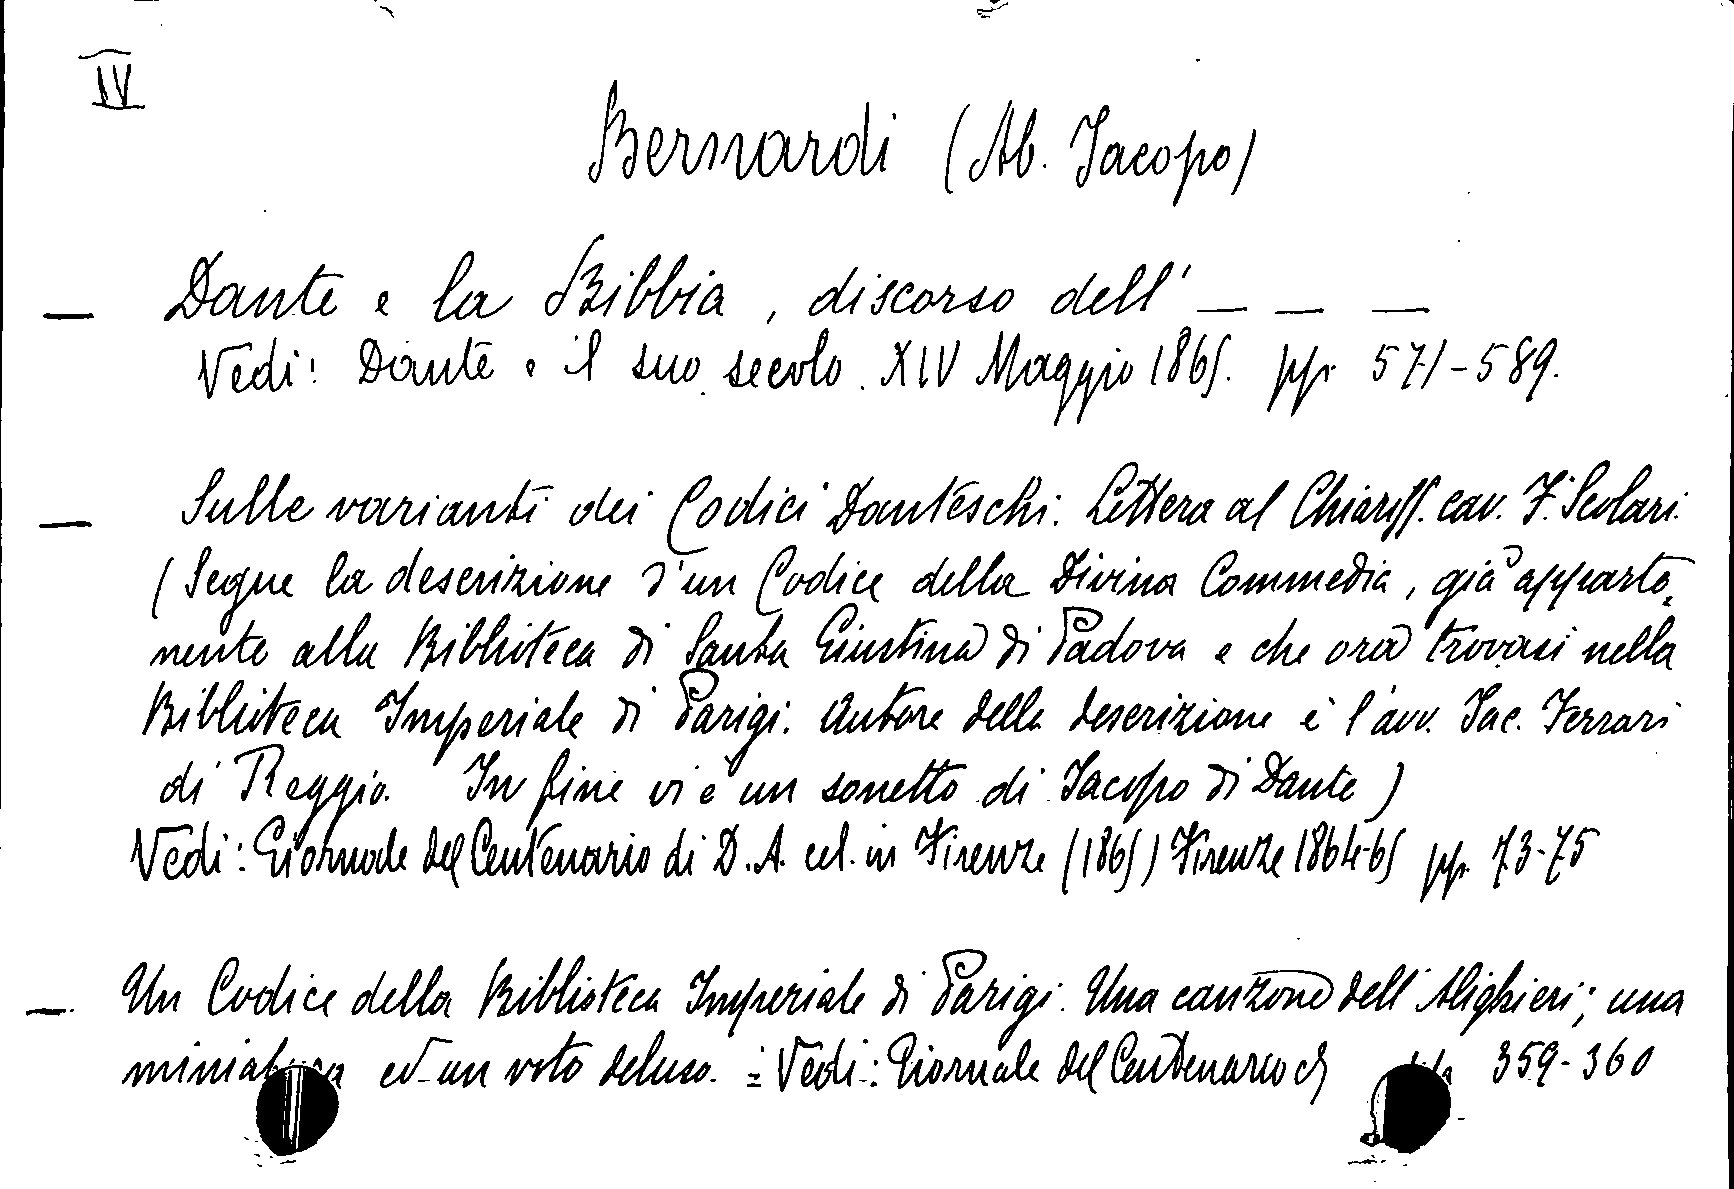 IV
Bernardi (Ab. Jacopo)
— Dante e la Bibbia, discorso dell' — — —
Vedi: Dante e il suo secolo. XIV Maggio 1865. pp. 571-589.
— Sulle varianti dei Codici Danteschi. Lettera al Chiariss. cav. F. Scolari.
(Segue la descrizione d'un Codice della Divina Commedia, già apparte-
nente alla Biblioteca di Santa Giustina di Padova e che ora trovasi nella
Biblioteca Imperiale di Parigi. Autore della descrizione è l'avv. Jac. Ferrari
di Reggio. In fine vi è un sonetto di Jacopo di Dante)
Vedi: Giornale del Centenario di D. A. cel. in Firenze (1865) Firenze 1864-65 pp. 73-75
— Un Codice della Biblioteca Imperiale di Parigi. Una canzone dell'Alighieri; una
miniatura ed un voto deluso. = Vedi: Giornale del Centenario 359-360